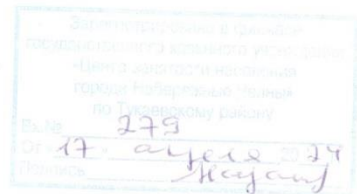 Зарегистрировано в границах
государственного казенного учреждения
«Центр занятости населения
города Набережные Челны»
по Тукаевскому району
Вх.№ 279
От «17» апреля 2024
Подпись